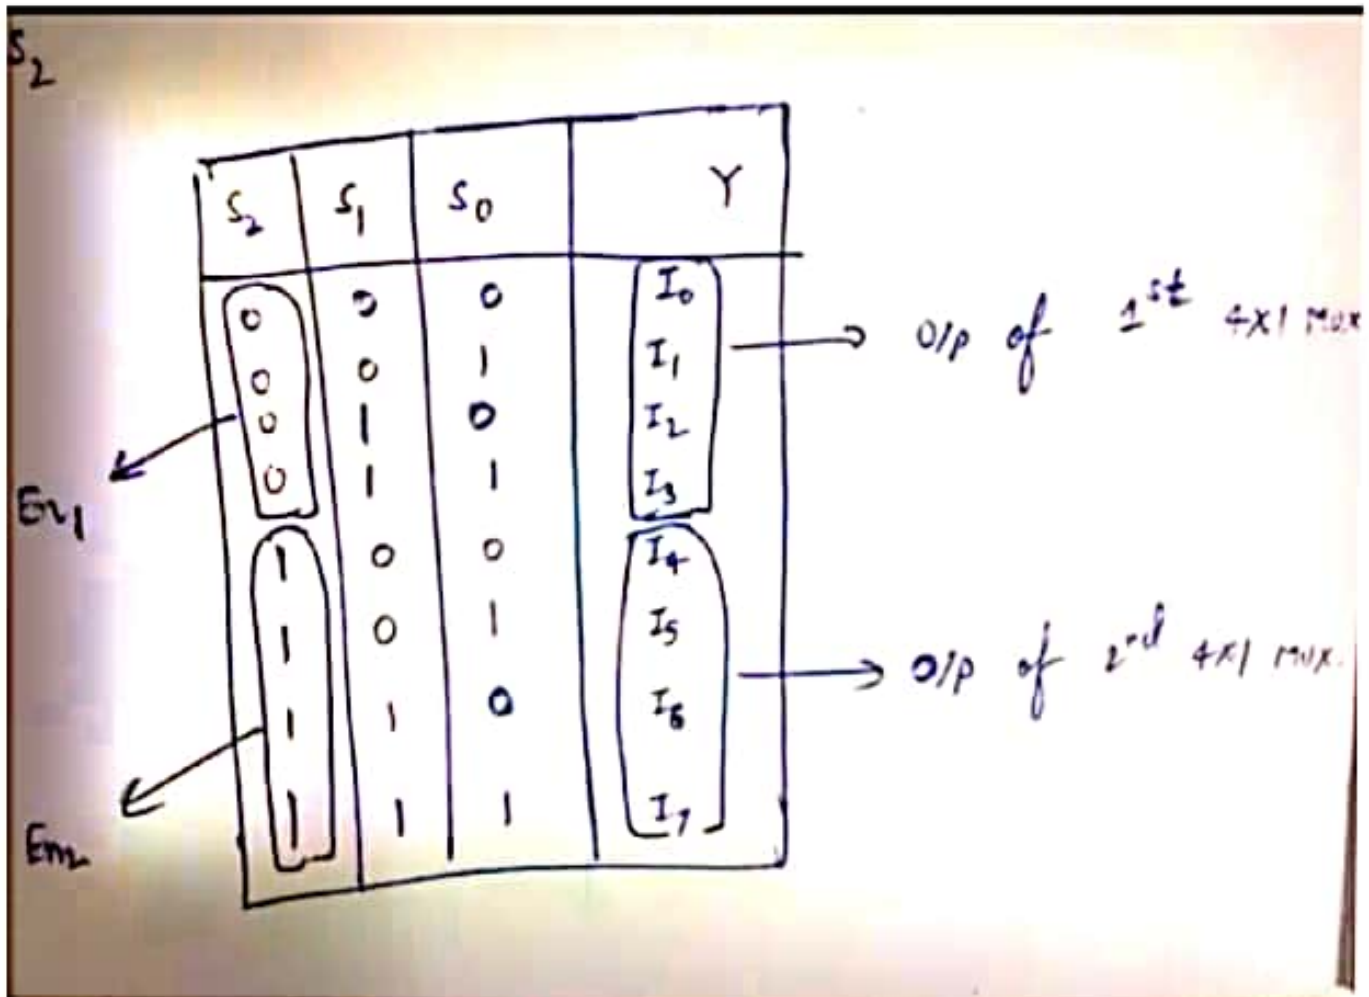 S2
S2 S1 S0 Y
0 0 0 I0
0 0 1 I1
0 1 0 I2
0 1 1 I3
1 0 0 I4
1 0 1 I5
1 1 0 I6
1 1 1 I7
O/P of 1st 4x1 MUX
En1
O/P of 2nd 4x1 MUX.
En2